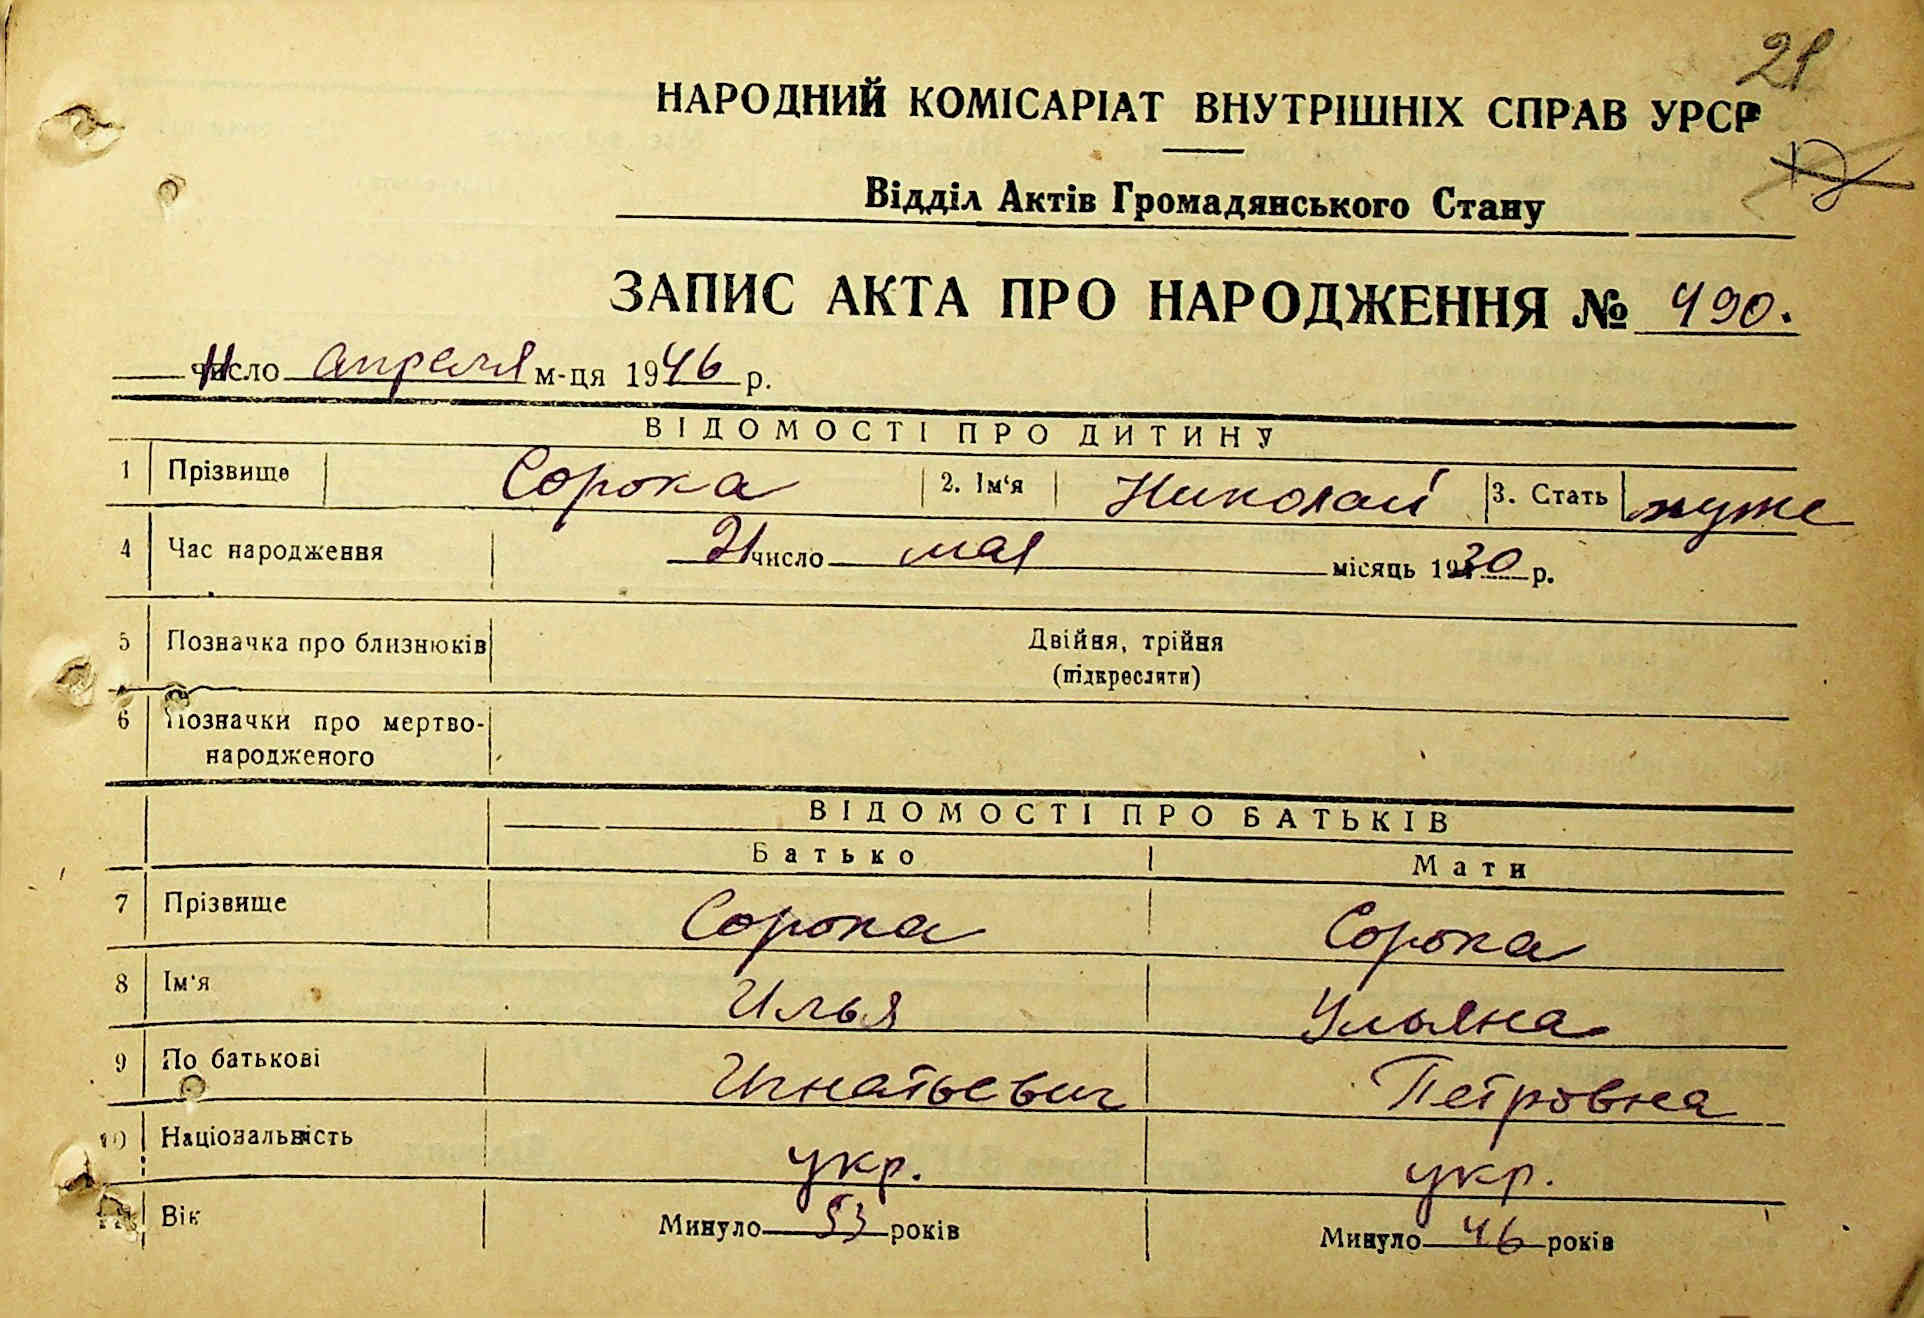 21
НАРОДНИЙ КОМІСАРІАТ ВНУТРІШНІХ СПРАВ УРСР
Відділ Актів Громадянського Стану
ЗАПИС АКТА ПРО НАРОДЖЕННЯ № 490.
11 число апреля м-ця 1946 р.
ВІДОМОСТІ ПРО ДИТИНУ
1 Прізвище Сорока 2. Ім'я Николай 3. Стать муже
4 Час народження 21 число мая місяць 1930 р.
5 Позначка про близнюків Двійня, трійня
(підкреслити)
6 Позначки про мертво-
народженого
ВІДОМОСТІ ПРО БАТЬКІВ
Батько Мати
7 Прізвище Сорока Сорока
8 Ім'я Илья Ульяна
9 По батькові Игнатьевич Петровна
10 Національність укр. укр.
11 Вік Минуло 53 років Минуло 46 років